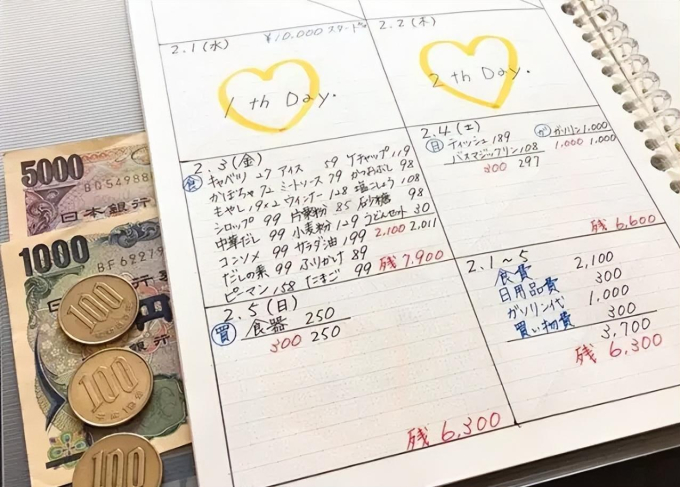 2.1(水)
¥10,000スタート
1 th Day.
2.2(木)
2 th Day.
2.3(金)
食
キャベツ 27 アイス 59 ケチャップ 119
かぼちゃ 72 ミートソース 79 かつおぶし 98
もやし 19×2 ウィンナー 128 塩こしょう 108
シロップ 99 片栗粉 85 砂糖 98
中華だし 99 小麦粉 129 うどんセット 30
コンソメ 99 サラダ油 199 2,100 2,011
だしの素 99 ふりかけ 89
ピーマン 158 たまご 99 残 7,900
2.4(土)
日 ティッシュ 189
バスマジックリン 108
300 297
ガ ガソリン 1,000
1,000 1,000
残 6,600
2.5(日)
買 食器 250
300 250
残 6,300
2.1~5
食費 2,100
日用品費 300
ガソリン代 1,000
買い物費 300
3,700
残 6,300
5000
日本銀行
1000
BF6227
円
銀行
100
100
平成19年
100